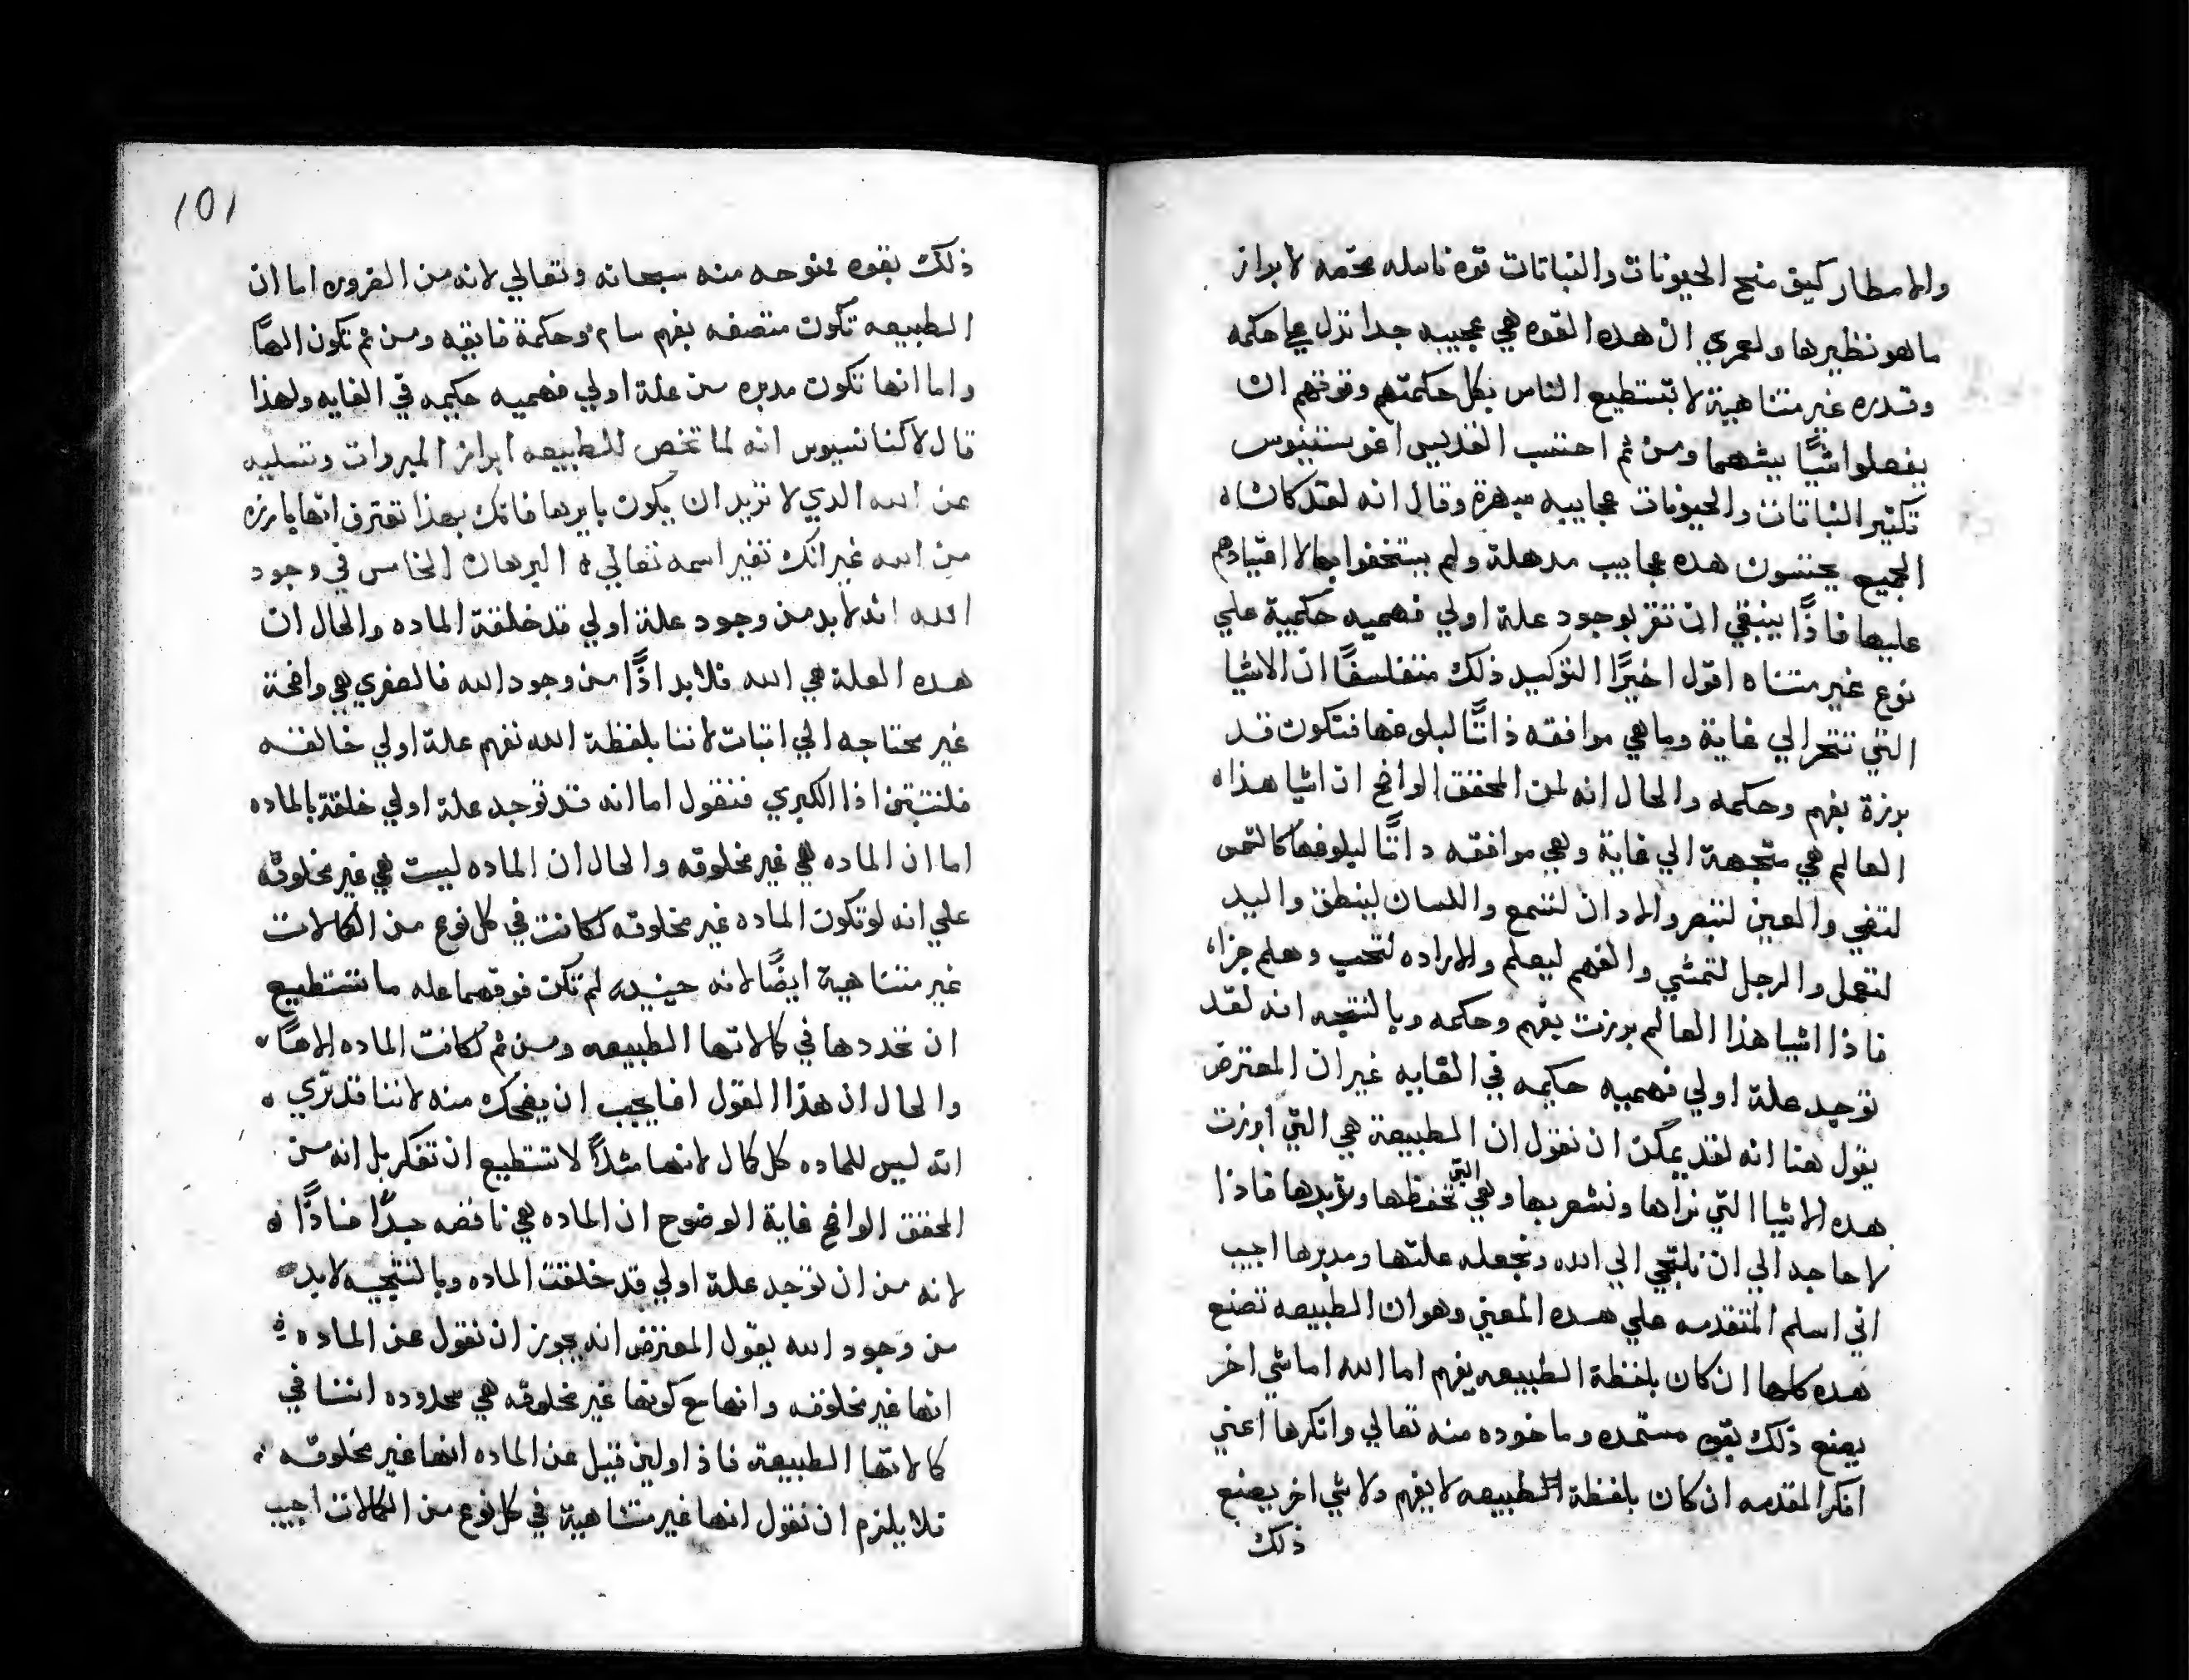 والامطار كيف منح الحيونات والنباتات قوه ناسله مختصه لابراز
ما هو نظيرها ولعمري ان هده القوه هي عجيبه جدا تدل علي حكمه
وقدره غير متناهية لا تستطيع الناس بكل حكمتهم وقوتهم ان
يفعلوا شيًا يشبهها ومن ثم احتسب القديس اغوستينوس
تكتير النباتات والحيونات عجايبه مبهرة وقال انه لقد كان
الجميع يحتسون هده عجايب مدهلة ولم يستخفوا بها لاعتيادهم
عليها فاذًا ينبغي ان تقر بوجود علة اولي فهميه حكمية علي
نوع غير متناه اقول اخيرًا التوكيد ذلك متفلسفًا ان الاشيا
التي تتجه الي غاية وما هي موافقه ذاتًا لبلوغها فتكون قد
برزة بفهم وحكمه والحال انه لمن المحقق الواضح ان اشيا هذا
العالم هي متجهة الي غاية وهي موافقه داتًا لبلوغها كالشمس
لتضي والعين لتبصر والادان لتسمع واللسان لينطق واليد
لتعمل والرجل لتمشي والفهم ليعلم والاراده لتحب وهلم جرًا
فاذا اشيا هذا العالم برزت بفهم وحكمه وبالنتيجه انه لقد
توجد علة اولي فهميه حكيمه في الغايه غير ان المعترض
يقول هنا انه لقد يمكن ان نقول ان الطبيعة هي التي ابرزت
هده الاشيا التي نراها ونشعر بها وهي التي تحفظها وتؤيدها فاذا
لا حاجه الي ان نلتجي الي الله ونجعله علتها ومدبرها اجيب
اني اسلم المتقدمه علي هده المعني وهو ان الطبيعه تصنع
هده كلها ان كان بلفظة الطبيعه يفهم اما الله اما شي اخر
يصنع ذلك بقوه مستمده وماخوده منه تعالي وانكرها اعني
انكر المقدمه ان كان بلفظة الطبيعه لا يفهم ولا شي اخر يصنع
ذلك
101
ذلك بقوه ممنوحه منه سبحانه وتعالي لانه من الضروره اما ان
الطبيعه تكون متصفه بفهم سام وحكمة فايقه ومن ثم تكون الهًا
واما انها تكون مدبره من علة اولي فهميه حكيمه في الغايه ولهذا
قال لاكتانسيوس انه لما تخص للطبيعه ابراز المبروات وتسليه
عن الله الدي لا تريد ان يكون بايرها فانك بهذا تعترف انها بارزه
من الله غير انك تغير اسمه تعالي ه البرهان الخامس في وجود
الله انه لابد من وجود علة اولي قد خلقة الماده والحال ان
هده العلة هي الله فلابد اذًا من وجود الله فالصغري هي واضحة
غير محتاجه الي اتبات لاننا بلفظة الله نفهم علة اولي خالقه
فلنتبتن اذا الكبري فنقول اما انه قد توجد علة اولي خلقة الماده
اما ان الماده هي غير مخلوقه والحال ان الماده ليست هي غير مخلوقه
علي انه لو تكون الماده غير مخلوقه لكانت في كل نوع من الكمالات
غير متناهية ايضًا لانه حينيده لم تكن فوقها عله ما تستطيع
ان تحددها في كمالاتها الطبيعه ومن ثم لكانت الماده الاهًا
والحال ان هذا القول انما يجب ان يضحك منه لاننا قد نري
انه ليس للماده كل كمال لانها مثلًا لا تستطيع ان تفكر بل انه من
المحقق الواضح غاية الوضوح ان الماده هي ناقصه جدًا فاذًا
لانه من ان توجد علة اولي قد خلقت الماده وبالنتيجه لابد
من وجود الله يقول المعترض انه يجوز ان نقول عن الماده
انها غير مخلوقه وانها مع كونها غير مخلوقه هي محدوده انتنا في
كمالاتها الطبيعة فاذا ولين قيل عن الماده انها غير مخلوقه
فلا يلزم ان نقول انها غير متناهية في كل نوع من الكمالات اجيب